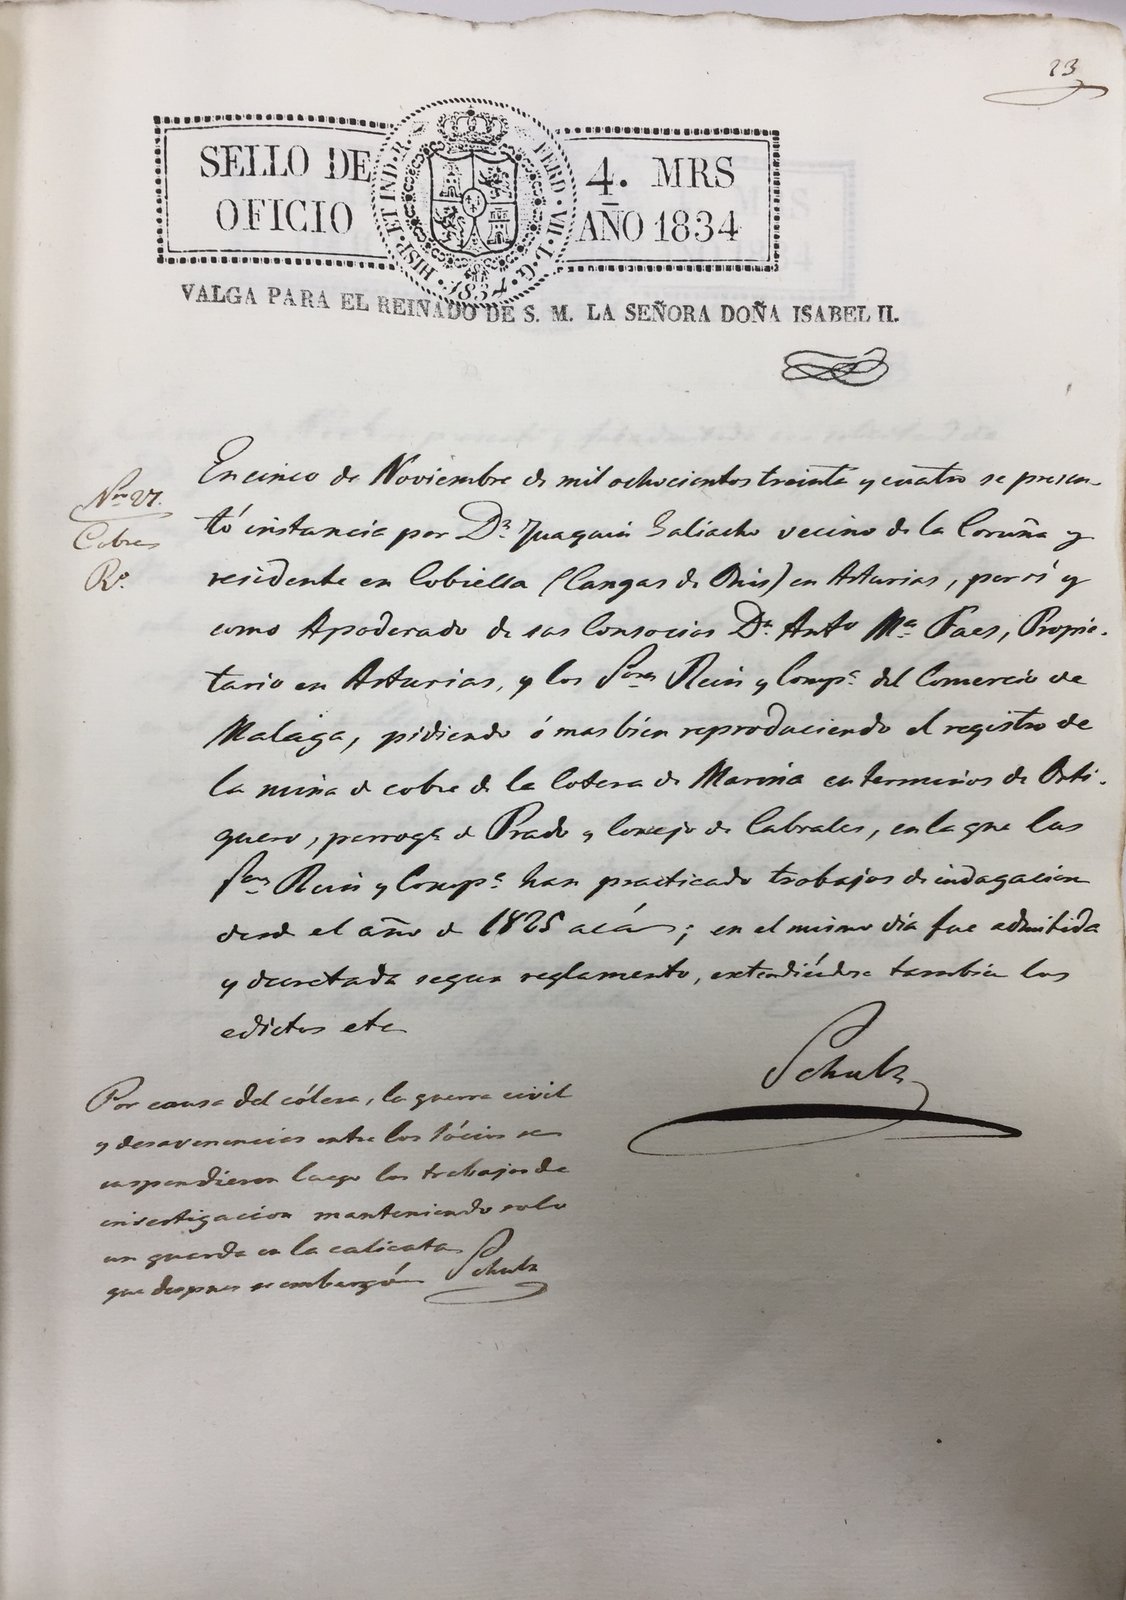 23
SELLO DE
OFICIO
HISP. ET IND. R. FERD. VII. D. G. 1834
4. MRS
AÑO 1834
VALGA PARA EL REINADO DE S. M. LA SEÑORA DOÑA ISABEL II.
Nro 27.
Cobre
Ro.
En cinco de Noviembre de mil ochocientos treinta y cuatro se presen-
tó instancia por Dn Juaquin Galiacho vecino de la Coruña y
residente en Cobiella (Cangas de Onis) en Asturias, por sí y
como Apoderado de sus Consocios Dn. Anto Ma Faes, Propie-
tario en Asturias, y los Sores Rein y Compa. del Comercio de
Malaga, pidiendo ó mas bien reproduciendo el registro de
la mina de cobre de la Cotera de Marina en terminos de Orti-
guero, parroqa. de Prado y Concejo de Cabrales, en la que los
Sores Rein y Compa. han practicado trabajos de indagacion
desde el año de 1825 acá; en el mismo dia fue admitida
y decretada segun reglamento, extendiéndose tambien los
edictos etc
Schulz
Por causa del cólera, la guerra civil
y desavenencias entre los sócios se
suspendieron luego los trabajos de
investigacion manteniendo solo
un guarda en la calicata
que despues se embargó Schulz